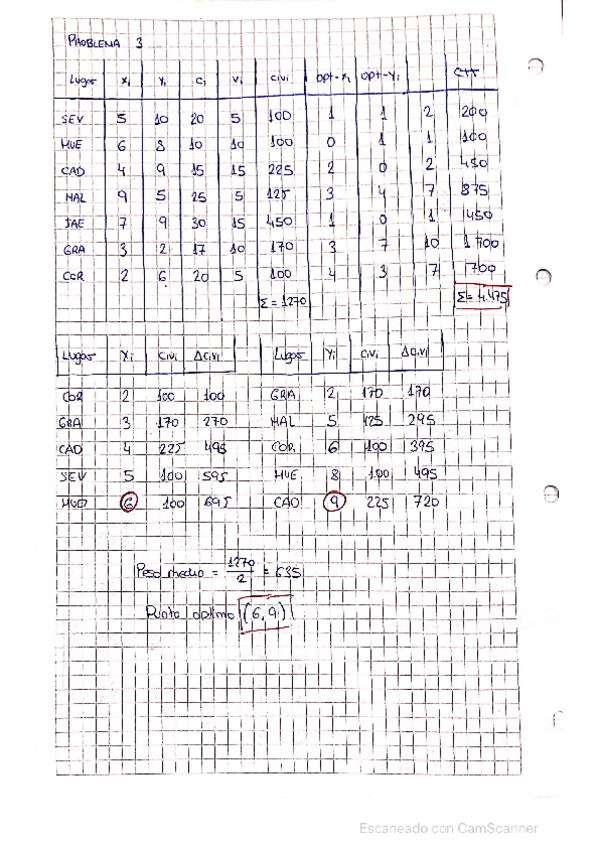 PROBLEMA 3
Lugar xi yi ci vi civi opt-xi opt-yi CTT
SEV 5 10 20 5 100 1 1 2 200
HUE 6 8 10 10 100 0 1 1 100
CAD 4 9 15 15 225 2 0 2 450
MAL 9 5 25 5 125 3 4 7 875
JAE 7 9 30 15 450 1 0 1 450
GRA 3 2 17 10 170 3 7 10 1700
COR 2 6 20 5 100 4 3 7 700
Σ = 1270 Σ = 4.475
Lugar xi civi Δcivi Lugar yi civi Δcivi
COR 2 100 100 GRA 2 170 170
GRA 3 170 270 MAL 5 125 295
CAD 4 225 495 COR 6 100 395
SEV 5 100 595 HUE 8 100 495
6 100 695 CAD 9 225 720
Peso medio = 1270/2 = 635
Punto optimo (6,9)
Escaneado con CamScanner